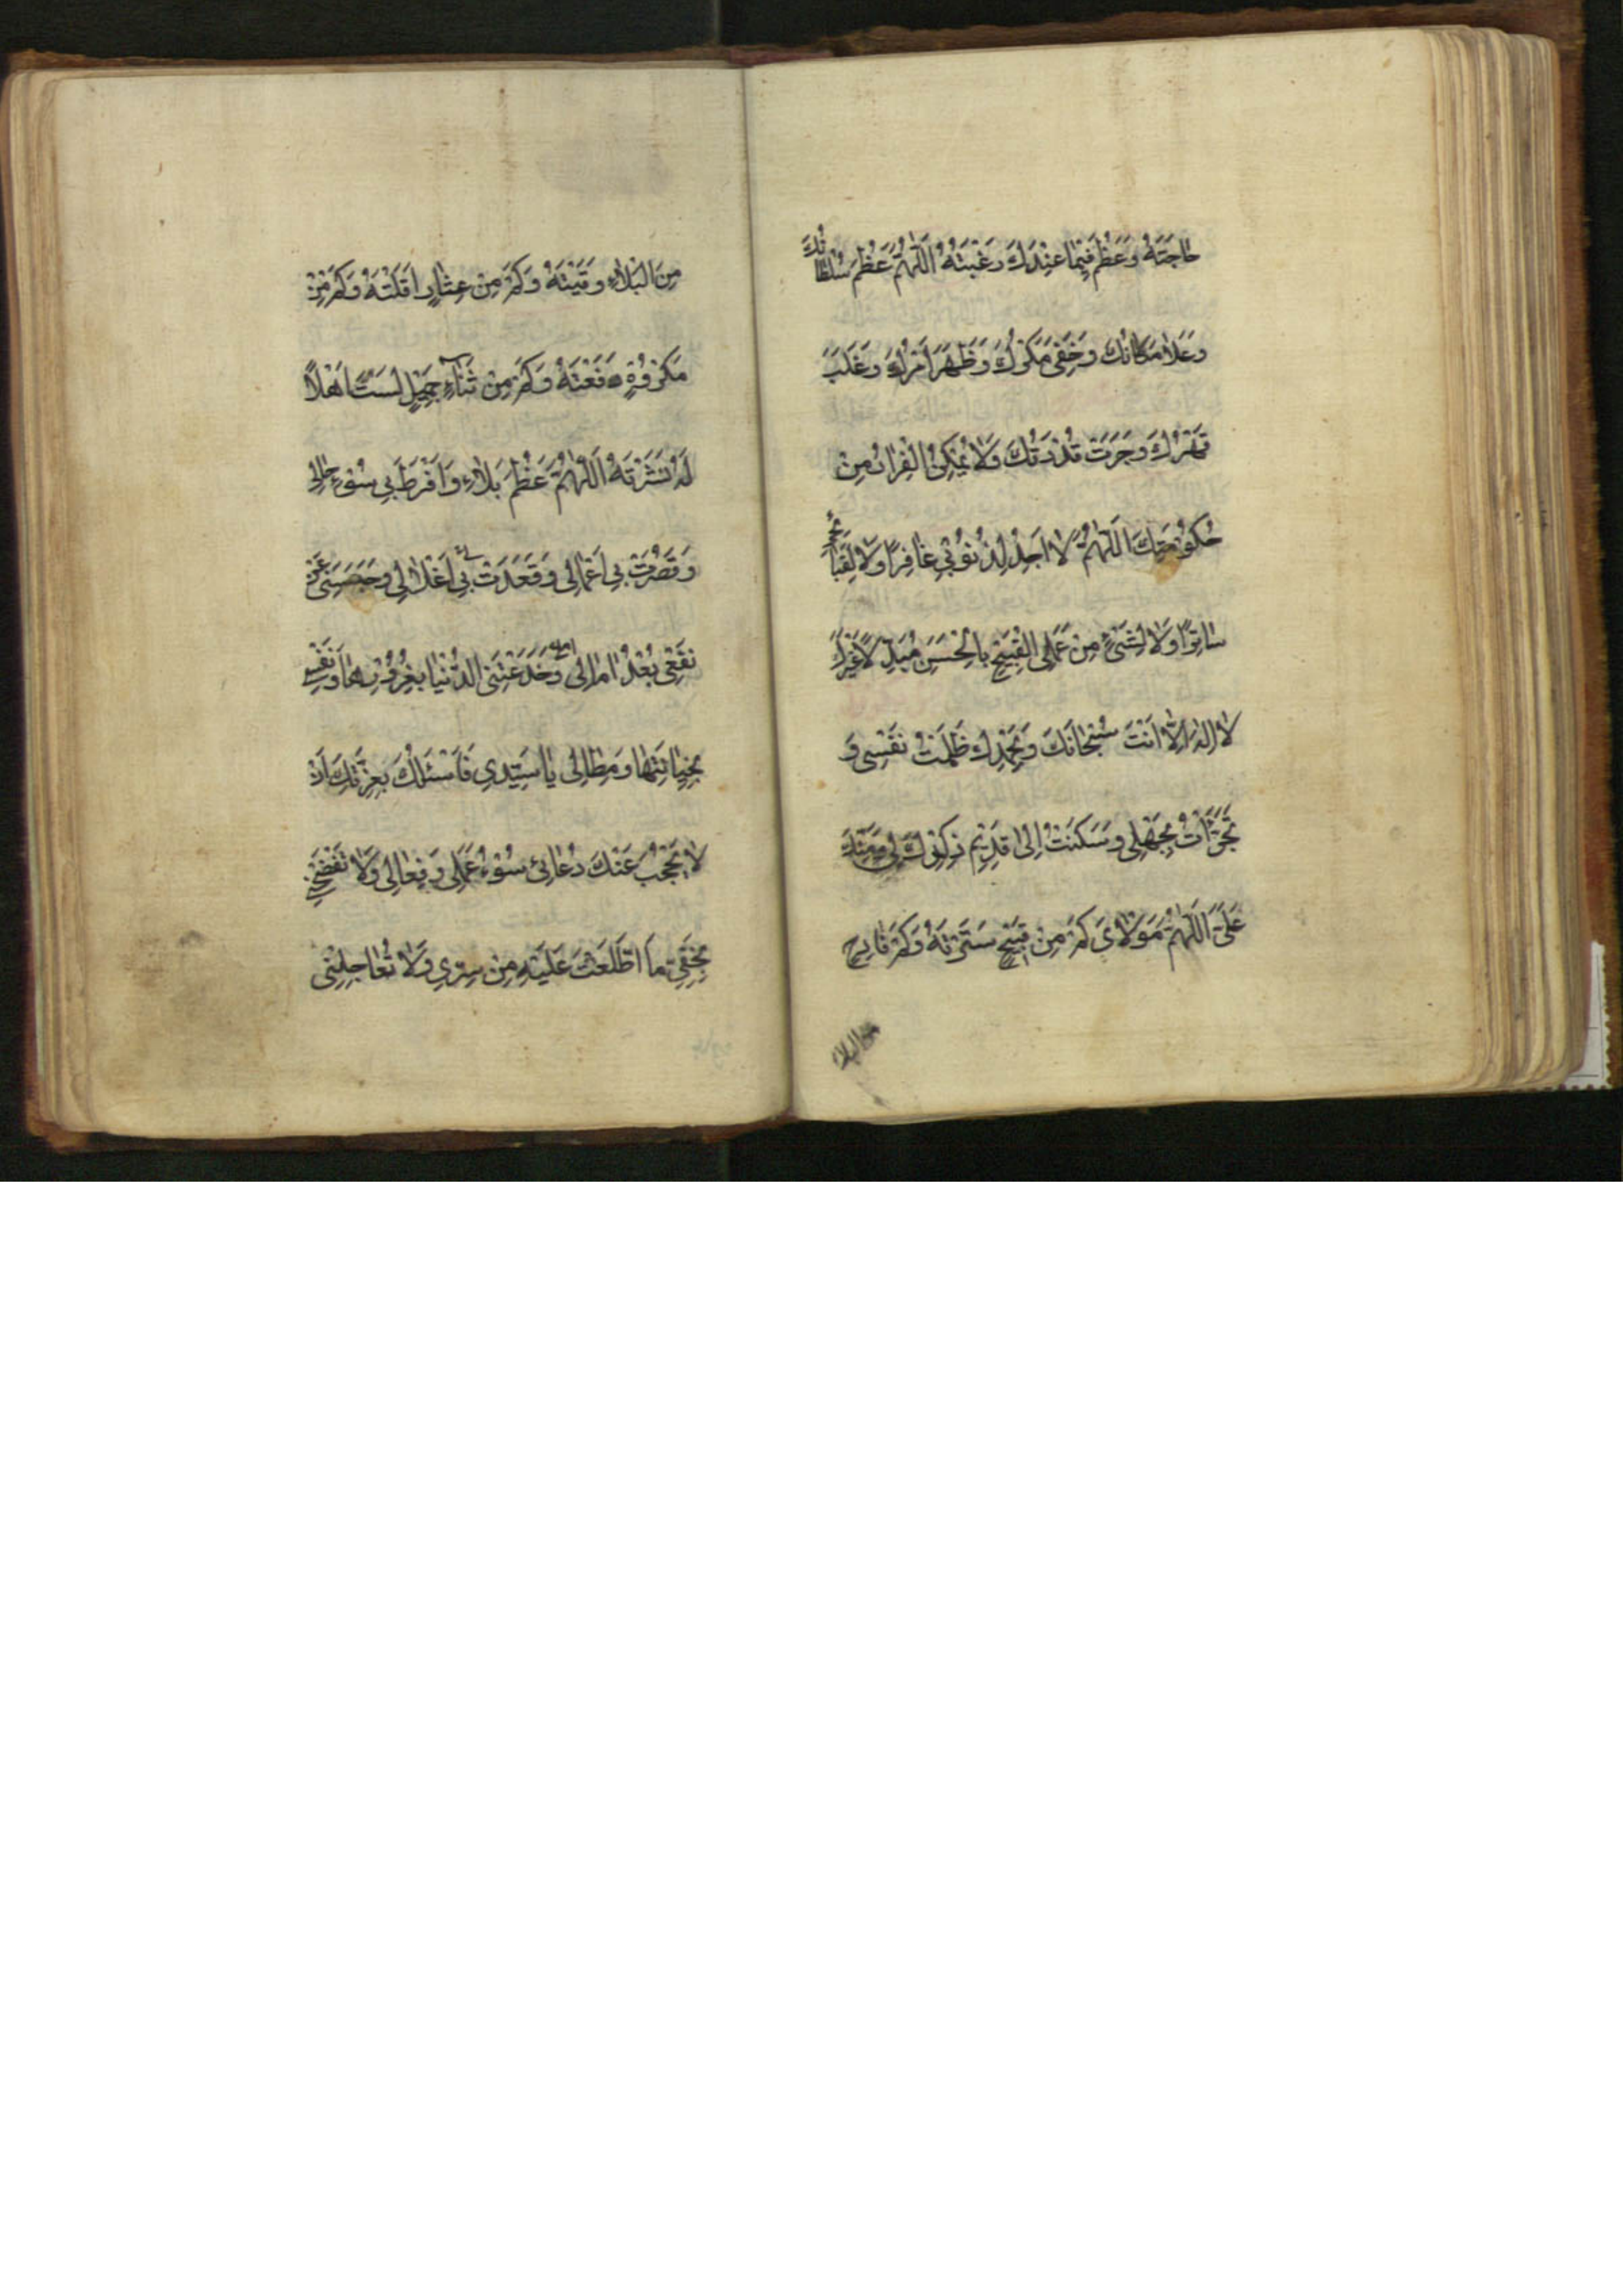 حَاجَتَهُ وَعَظُمَ فِيمَا عِنْدَكَ رَغْبَتُهُ اَللّٰهُمَّ عَظُمَ سُلْطَانُكَ
وَعَلَا مَكَانُكَ وَخَفِىَ مَكْرُكَ وَظَهَرَ اَمْرُكَ وَغَلَبَ
قَهْرُكَ وَجَرَتْ قُدْرَتُكَ وَلَا يُمْكِنُ الْفِرَارُ مِنْ
حُكُومَتِكَ اَللّٰهُمَّ لَا اَجِدُ لِذُنُوبِي غَافِرًا وَلَا لِقَبَائِحِي
سَاتِرًا وَلَا لِشَىْءٍ مِنْ عَمَلِىَ الْقَبِيحِ بِالْحَسَنِ مُبَدِّلًا غَيْرَكَ
لَا اِلٰهَ اِلَّا اَنْتَ سُبْحَانَكَ وَبِحَمْدِكَ ظَلَمْتُ نَفْسِى وَ
تَجَرَّأْتُ بِجَهْلِى وَسَكَنْتُ اِلٰى قَدِيمِ ذِكْرِكَ لِي وَمَنِّكَ
عَلَىَّ اَللّٰهُمَّ مَوْلَاىَ كَمْ مِنْ قَبِيحٍ سَتَرْتَهُ وَكَمْ فَادِحٍ
من البلاء
مِنَ الْبَلَاءِ وَقَيْتَهُ وَكَمْ مِنْ عِثَارٍ اَقَلْتَهُ وَكَمْ مِنْ
مَكْرُوهٍ دَفَعْتَهُ وَكَمْ مِنْ ثَنَاءٍ جَمِيلٍ لَسْتُ اَهْلًا
لَهُ نَشَرْتَهُ اَللّٰهُمَّ عَظُمَ بَلَاءِ وَاَفْرَطَ بِي سُوءُ حَالِى
وَقَصُرَتْ بِي اَعْمَالِى وَقَعَدَتْ بِي اَغْلَالِي وَحَبَسَنِى عَنْ
نَفْعِى بُعْدُ امَالِى وَخَدَعَتْنِى الدُّنْيَا بِغُرُورِهَا وَنَفْسِي
بِخِيَانَتِهَا وَمِطَالِى يَا سَيِّدِي فَاَسْئَلُكَ بِعِزَّتِكَ اَنْ
لَا يَحْجُبَ عَنْكَ دُعَائِى سُوءُ عَمَلِى وَفِعَالِى وَلَا تَفْضَحْنِي
بِخَفِىِّ مَا اطَّلَعْتَ عَلَيْهِ مِنْ سِرِّي وَلَا تُعَاجِلْنِى